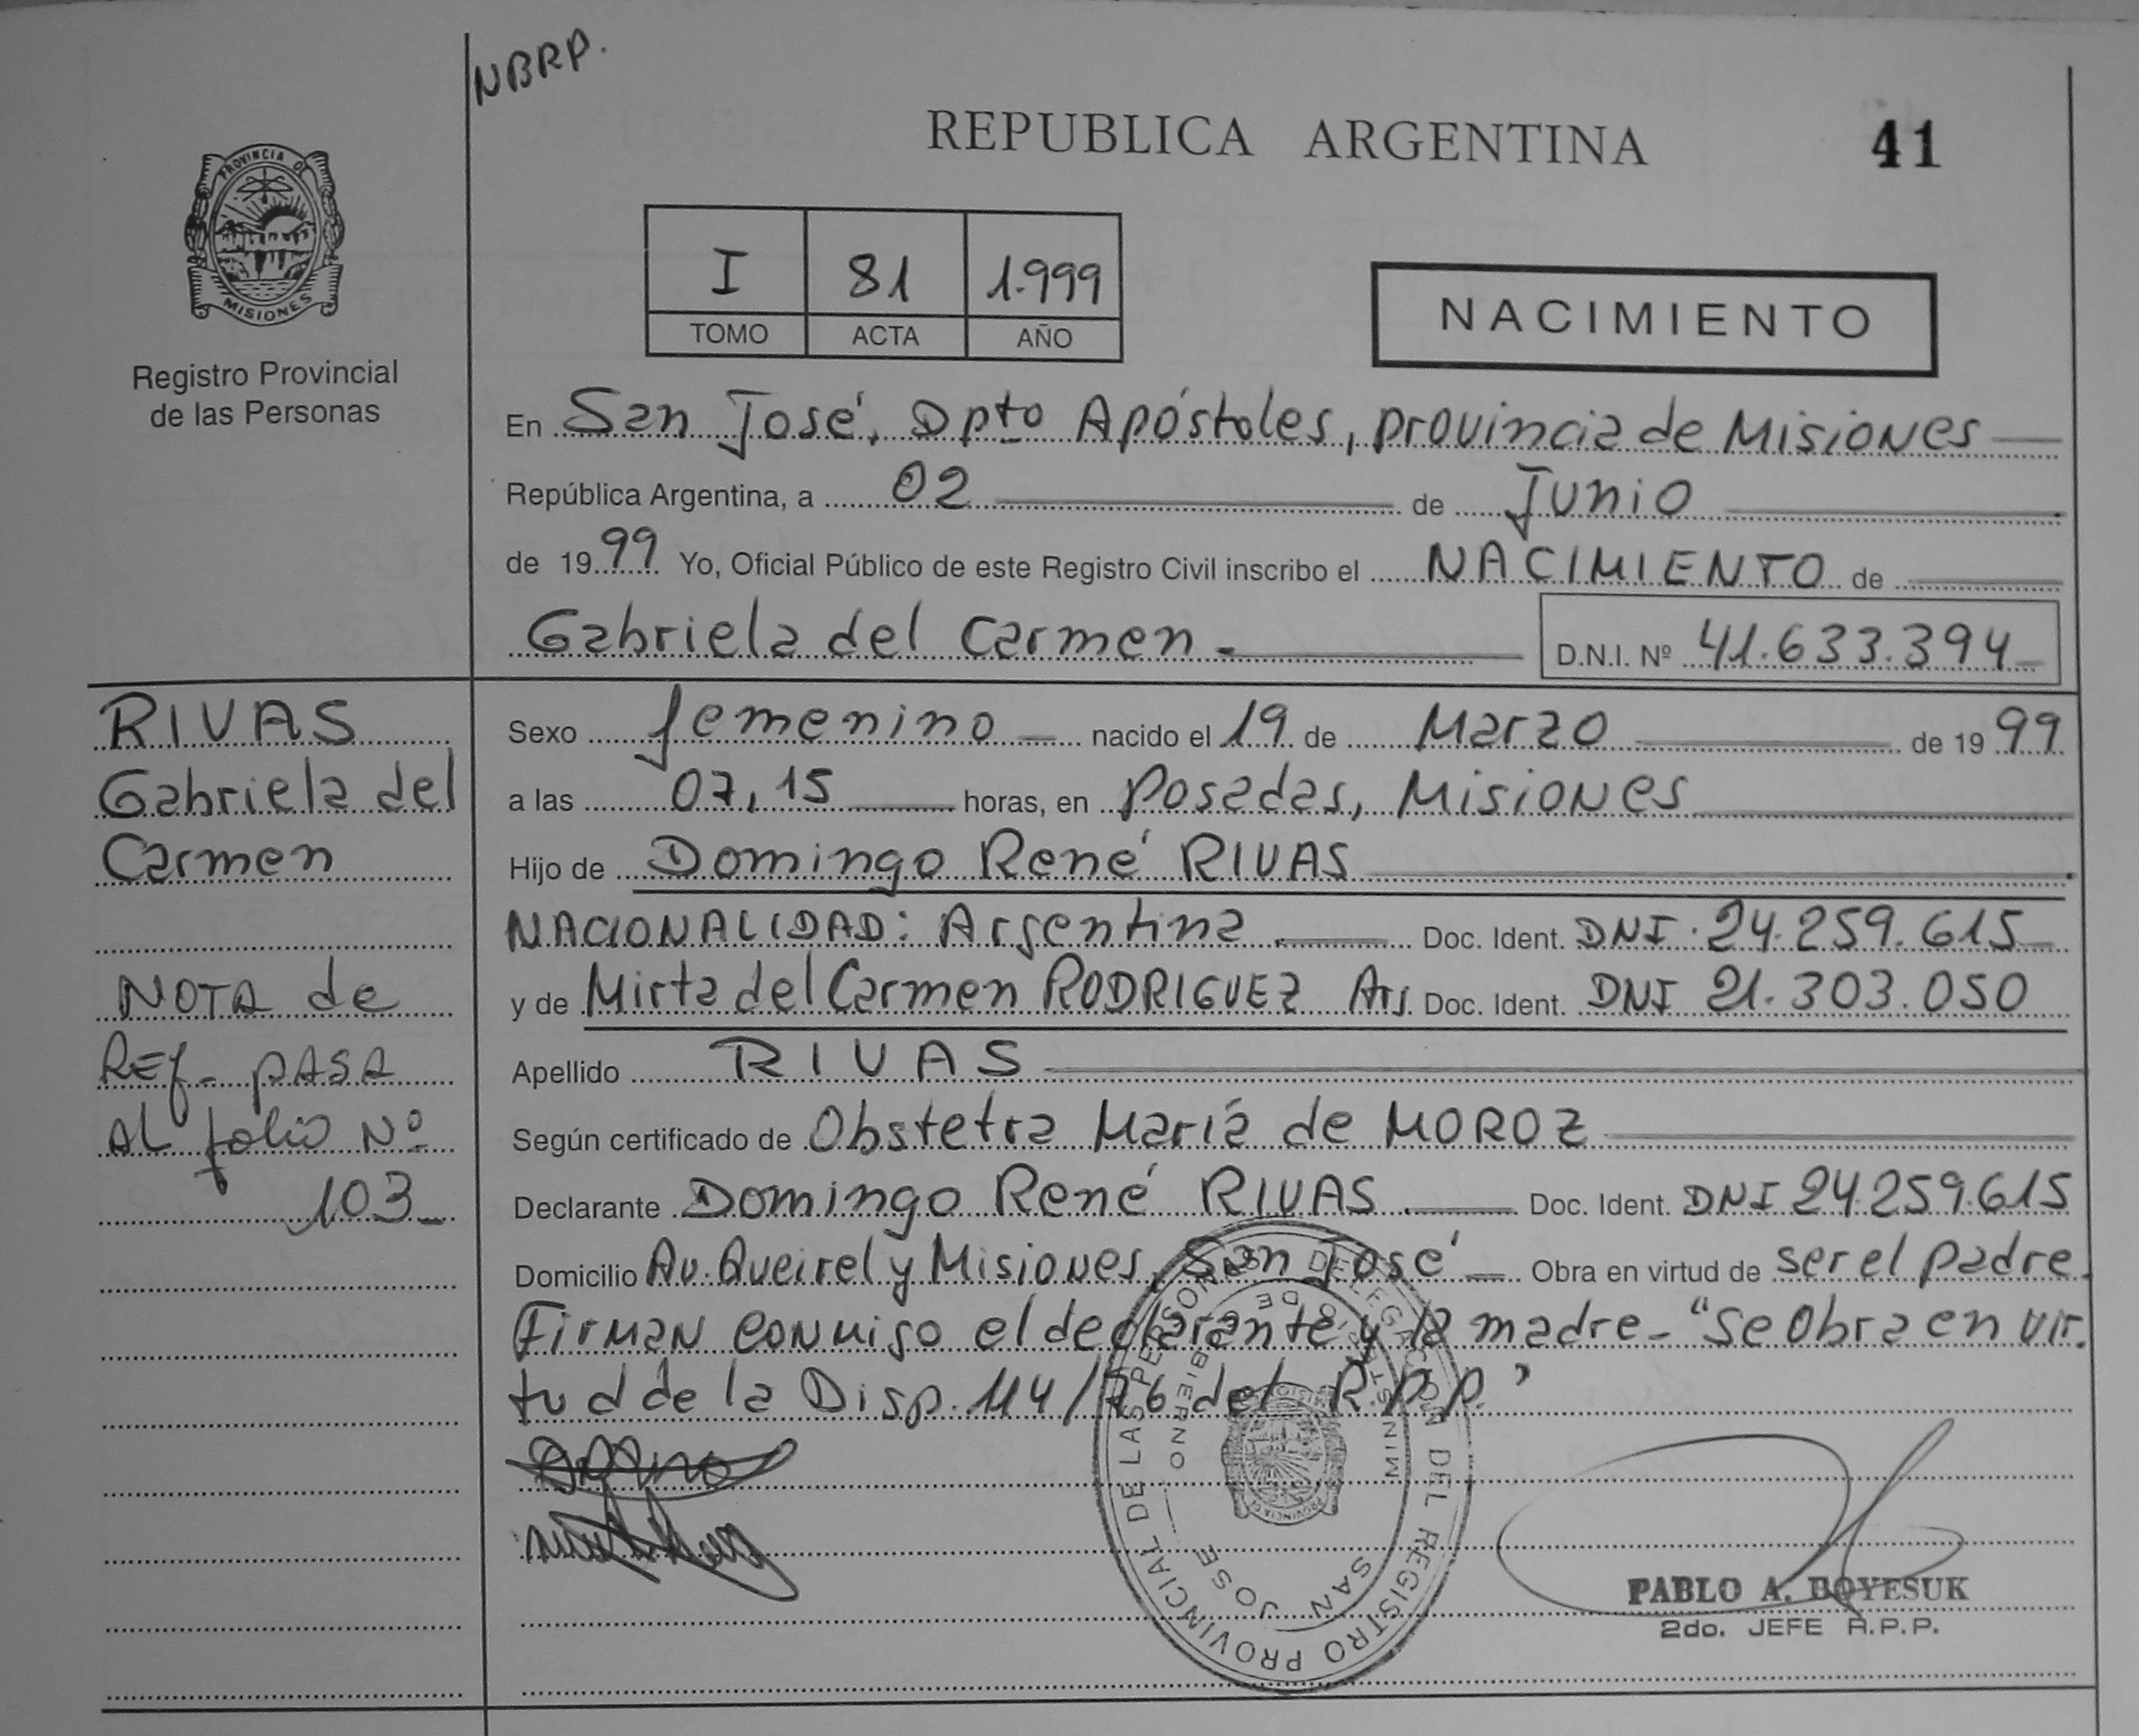 NBRP.
REPUBLICA ARGENTINA
41
PROVINCIA DE
MISIONES
Registro Provincial
de las Personas
I 81 1.999
TOMO ACTA AÑO
NACIMIENTO
En San José, Dpto Apóstoles, provincia de Misiones
República Argentina, a 02 de Junio
de 1999 Yo, Oficial Público de este Registro Civil inscribo el NACIMIENTO de
Gabriela del Carmen
D.N.I. Nº 41.633.394
RIVAS
Gabriela del
Carmen
NOTA de
Ref- PASA
AL folio Nº
103
Sexo femenino nacido el 19 de Marzo de 1999
a las 07,15 horas, en Posadas, Misiones
Hijo de Domingo René RIVAS
NACIONALIDAD: Argentina Doc. Ident. DNI 24.259.615
y de Mirta del Carmen RODRIGUEZ Arg Doc. Ident. DNI 21.303.050
Apellido RIVAS
Según certificado de Obstetra María de MOROZ
Declarante Domingo René RIVAS Doc. Ident. DNI 24.259.615
Domicilio Av. Queirel y Misiones, San José Obra en virtud de ser el padre.
Firman conmigo el declarante y la madre- "Se Obra en vir.
tud de la Disp. 114/76 del R.P.P."
DELEGACION DEL REGISTRO PROVINCIAL DE LAS PERSONAS
MINISTERIO DE GOBIERNO
SAN JOSE
PABLO A. BOYESUK
2do. JEFE R.P.P.